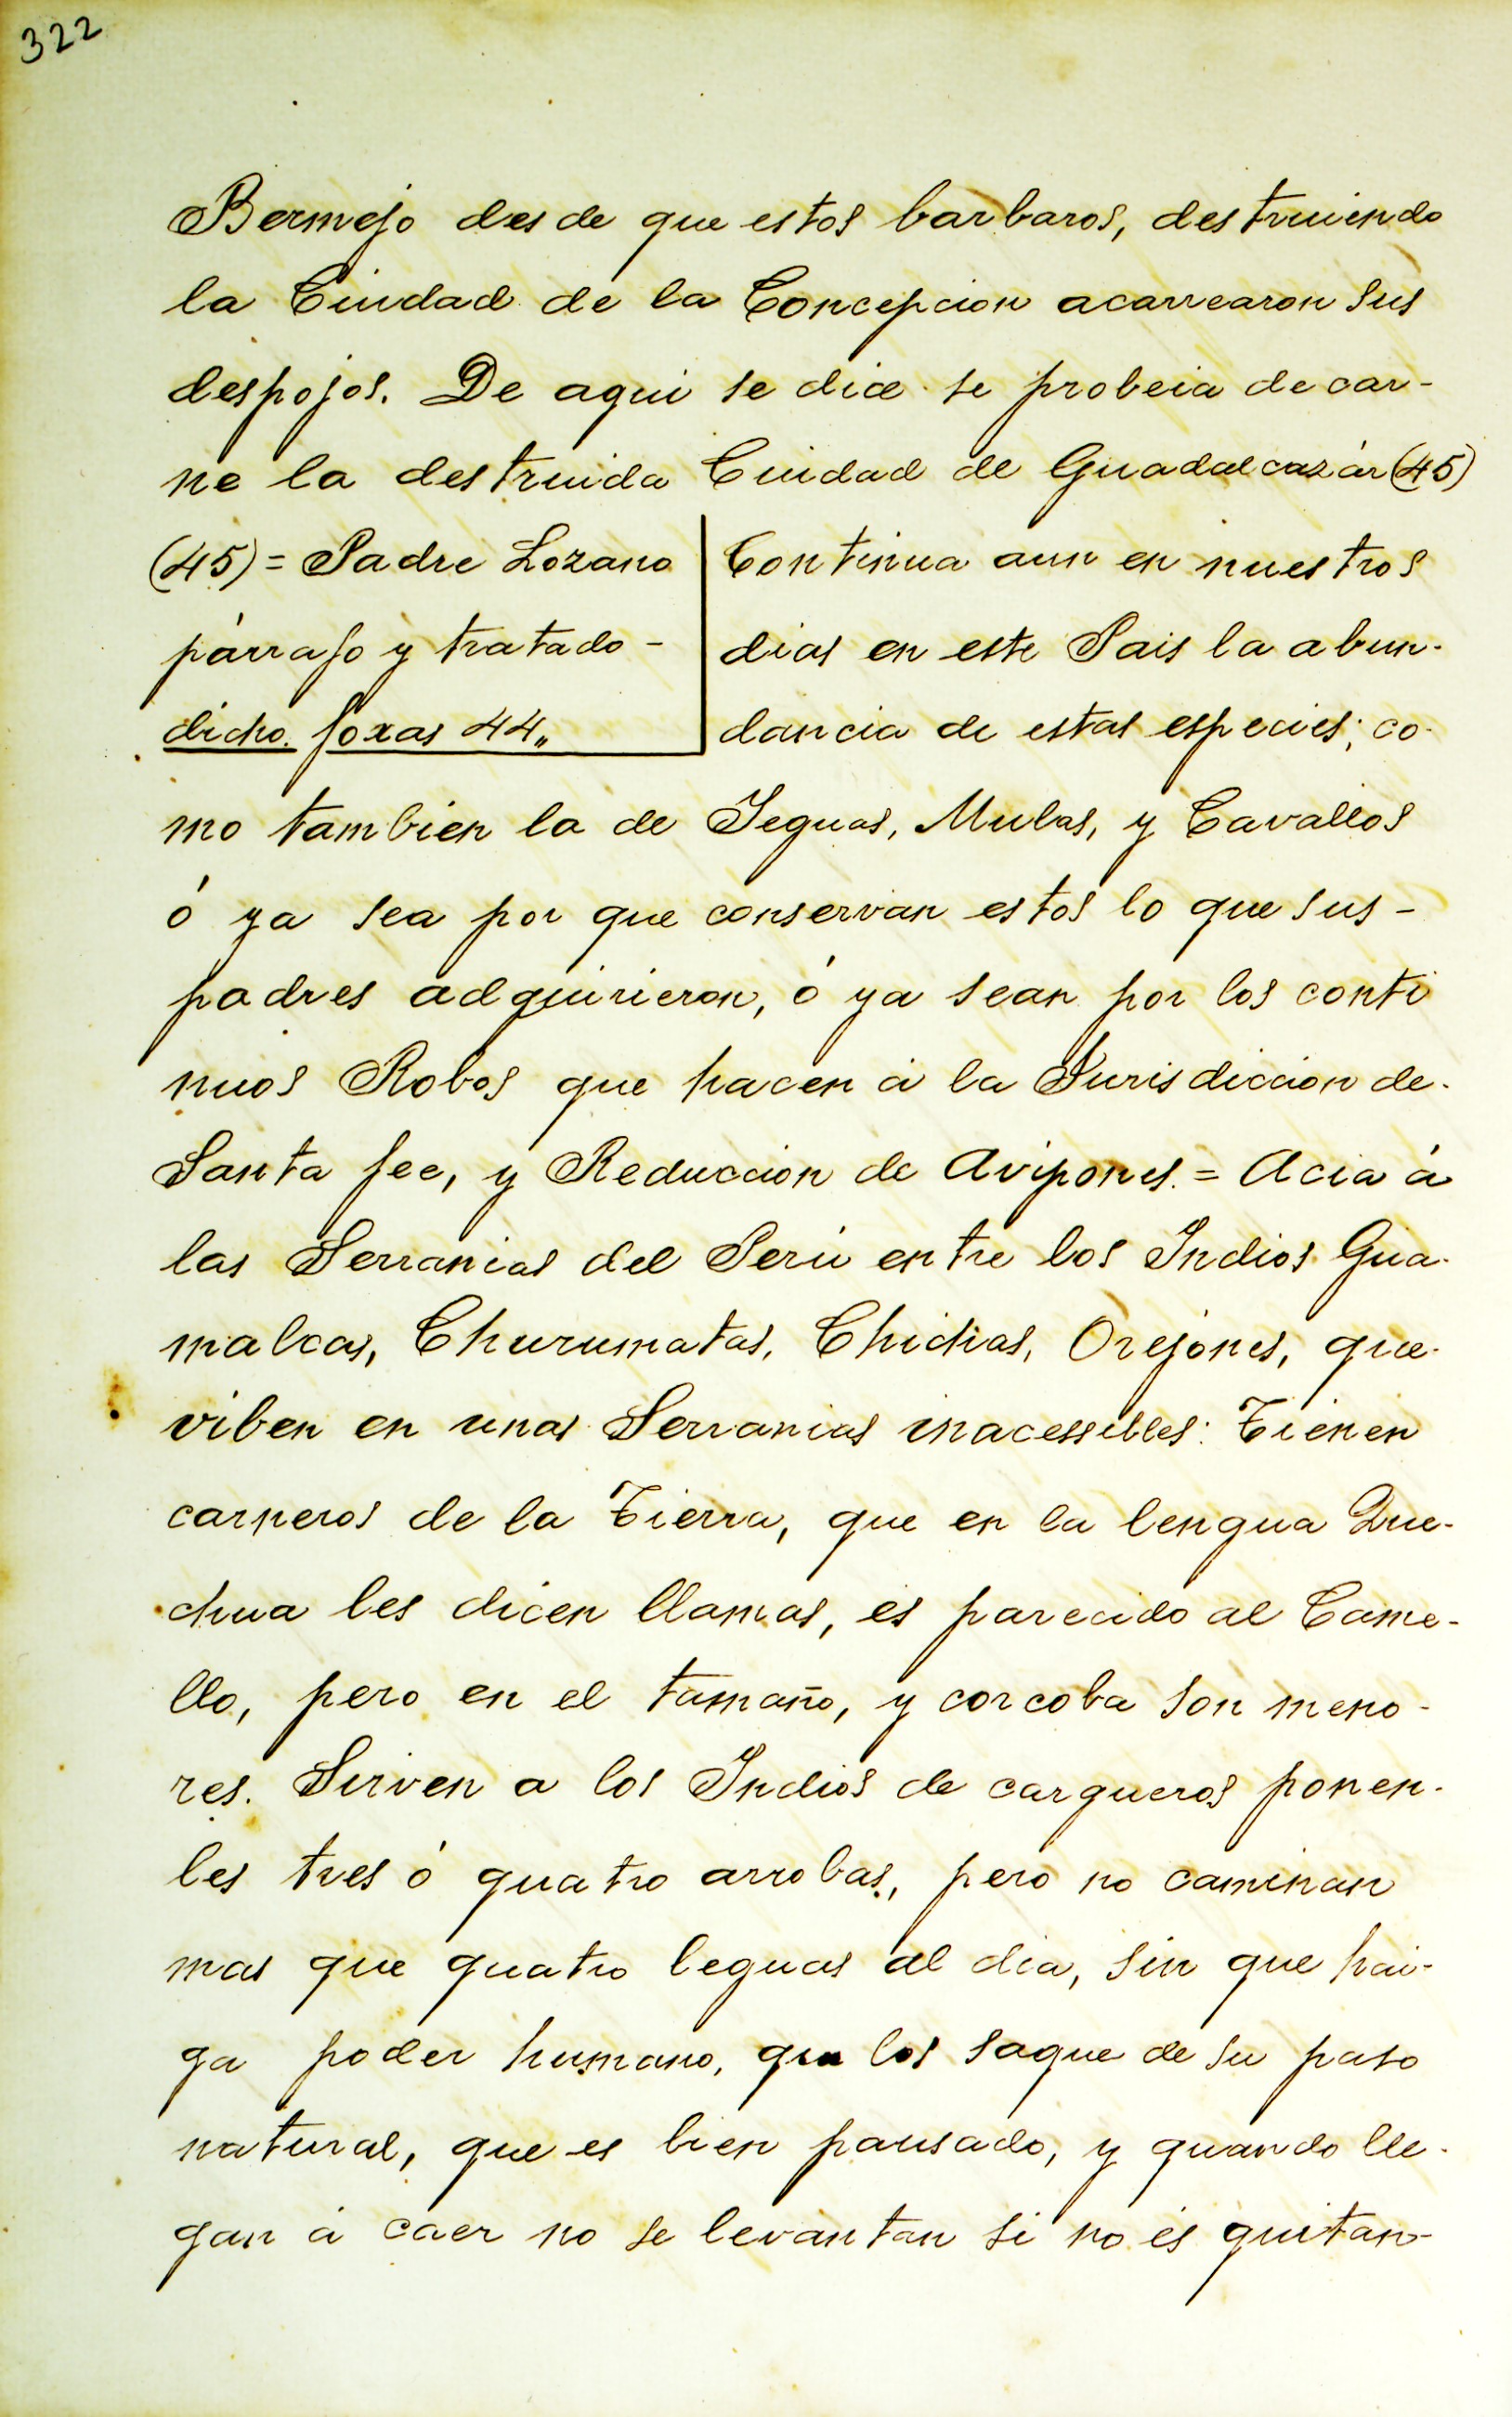 322
Bermejo desde que estos barbaros, destruiendo
la Ciudad de la Concepcion acarrearon sus
despojos. De aqui se dice se probeia de car-
ne la destruida Ciudad de Guadalcazár (45)
(45) = Padre Lozano
párrafo y tratado -
dicho. foxas 44,,
Continua aun en nuestros
dias en este Pais la abun-
dancia de estas especies; co-
mo tambien la de Yeguas, Mulas, y Cavallos
ó ya sea por que conservan estos lo que sus -
padres adquirieron, ó ya sean por los conti
nuos Robos que hacen á la Jurisdiccion de-
Santa fee, y Reduccion de Avipones. = Acia á
las Serranias del Perú entre los Indios Gua-
malcas, Churumatas, Chichas, Orejones, que-
viben en unas Serranias inacessibles: Tienen
carneros de la Tierra, que en la lengua Que-
chua les dicen llamas, es parecido al Came-
llo, pero en el tamaño, y corcoba son meno-
res. Sirven a los Indios de cargueros ponen-
les tres ó quatro arrobas, pero no caminan
mas que quatro leguas al dia, sin que hai-
ga poder humano, que los saque de su paso
natural, que es bien pausado, y quando lle-
gan á caer no se levantan si no és quitan-